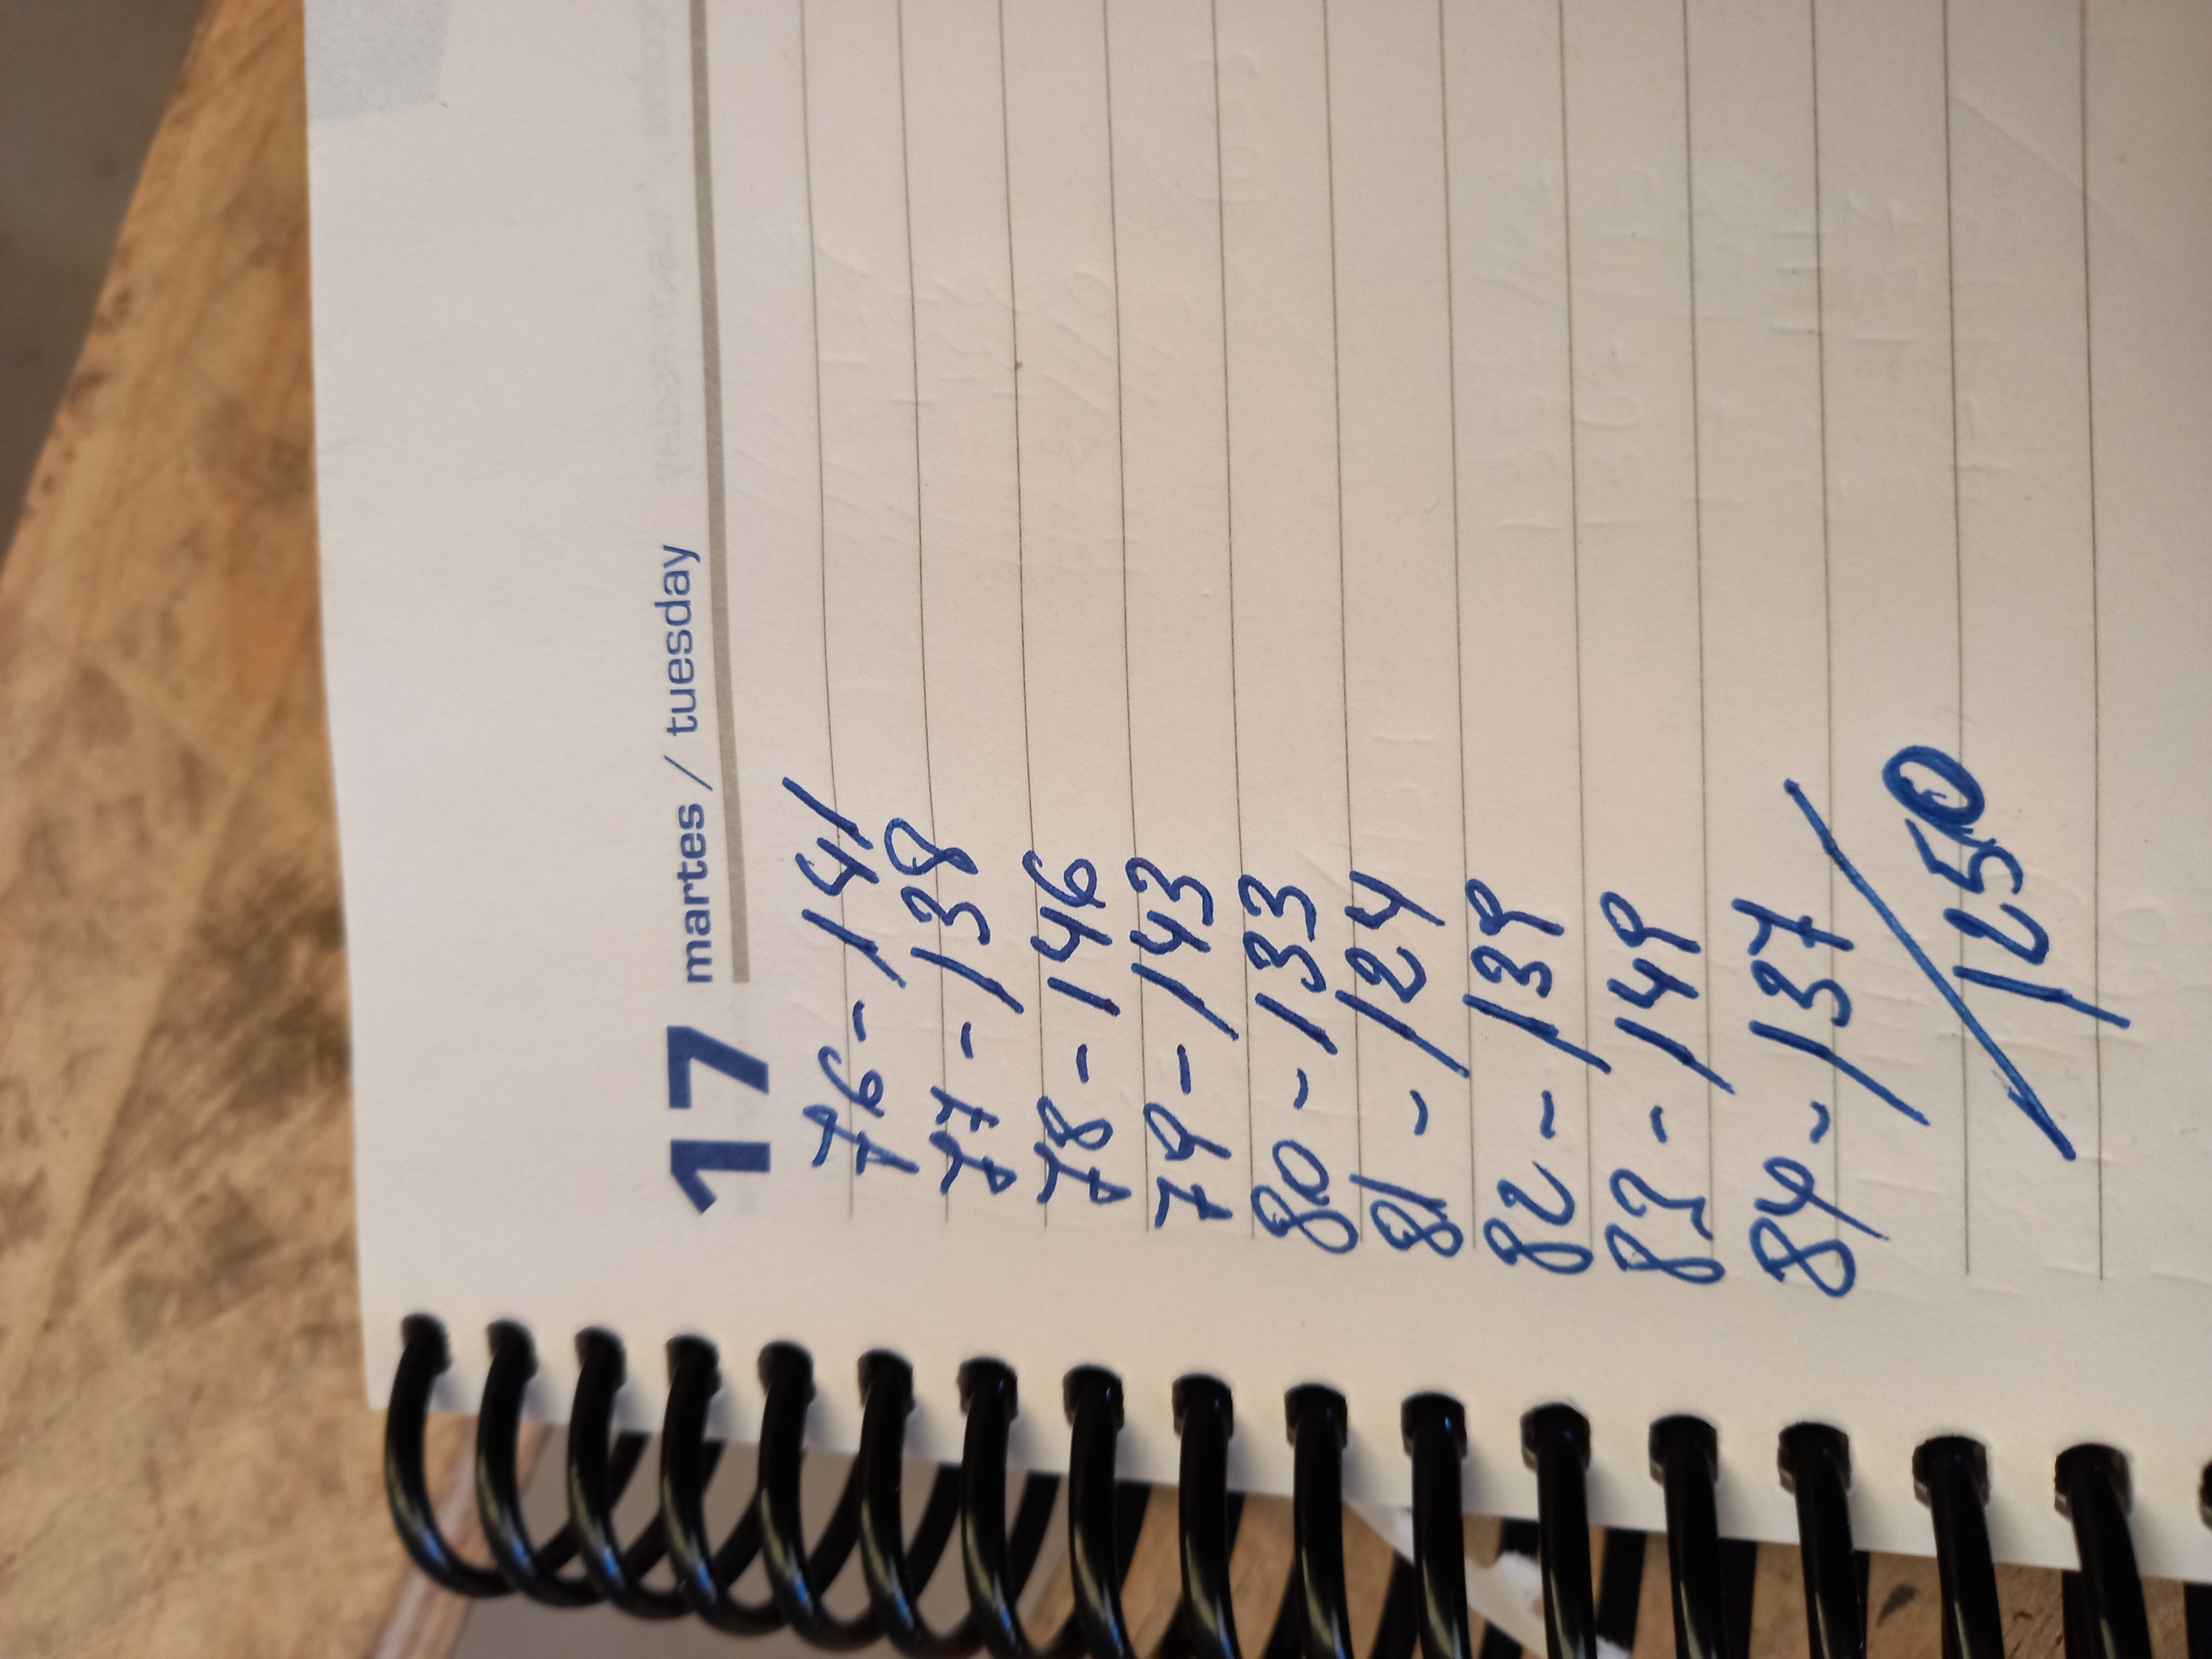 17 martes / tuesday
76 - 141
77 - 138
78 - 146
79 - 143
80 - 133
81 - 124
82 - 139
83 - 149
84 - 137
1250